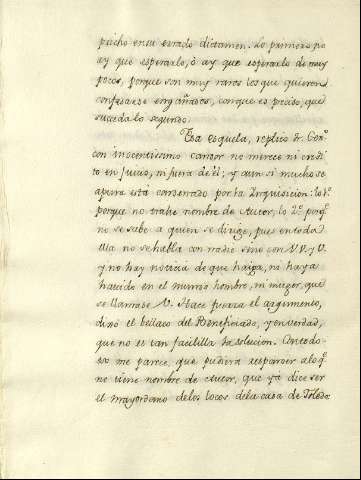 pecho en su errado dictamen. Lo primero no
ay que esperarlo, ò ay que esperarlo de muy
pocos, porque son muy raros los que quieren
confesarse engañados, conque es preciso, que
suceda lo segundo.
Esa esquela, replicò Dr. Conº.
con inocentissimo candor no merece ni credi
to en Juicio, ni fuera de èl; y aun si mucho se
apura està condenada por la Inquisicion: lo 1º.
porque no trahe nombre de Autor, lo 2º. porqᵉ.
no se sabe a quien se dirige, pues en toda
ella no se habla con nadie sino con V. V. y V.
y no hay noticia de que haiga, ni haya
havido en el mundo hombre, ni muger, que
se llamase V. Hace fuerza el argumento,
dixo el bellaco del Beneficiado, y en verdad,
que no es tan facililla la solucion. Con todo
eso me parece, que pudiera responder a lo qᵉ.
no tiene nombre de Autor, que ya dice ser
el mayordomo de los locos de la casa de Toledo